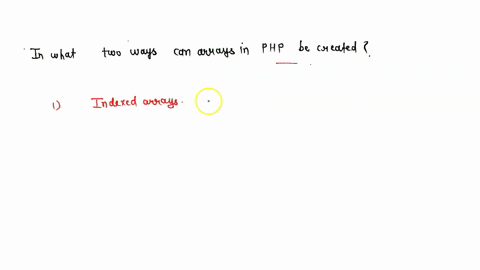 In what two ways can arrays in PHP be created?
1) Indexed arrays.